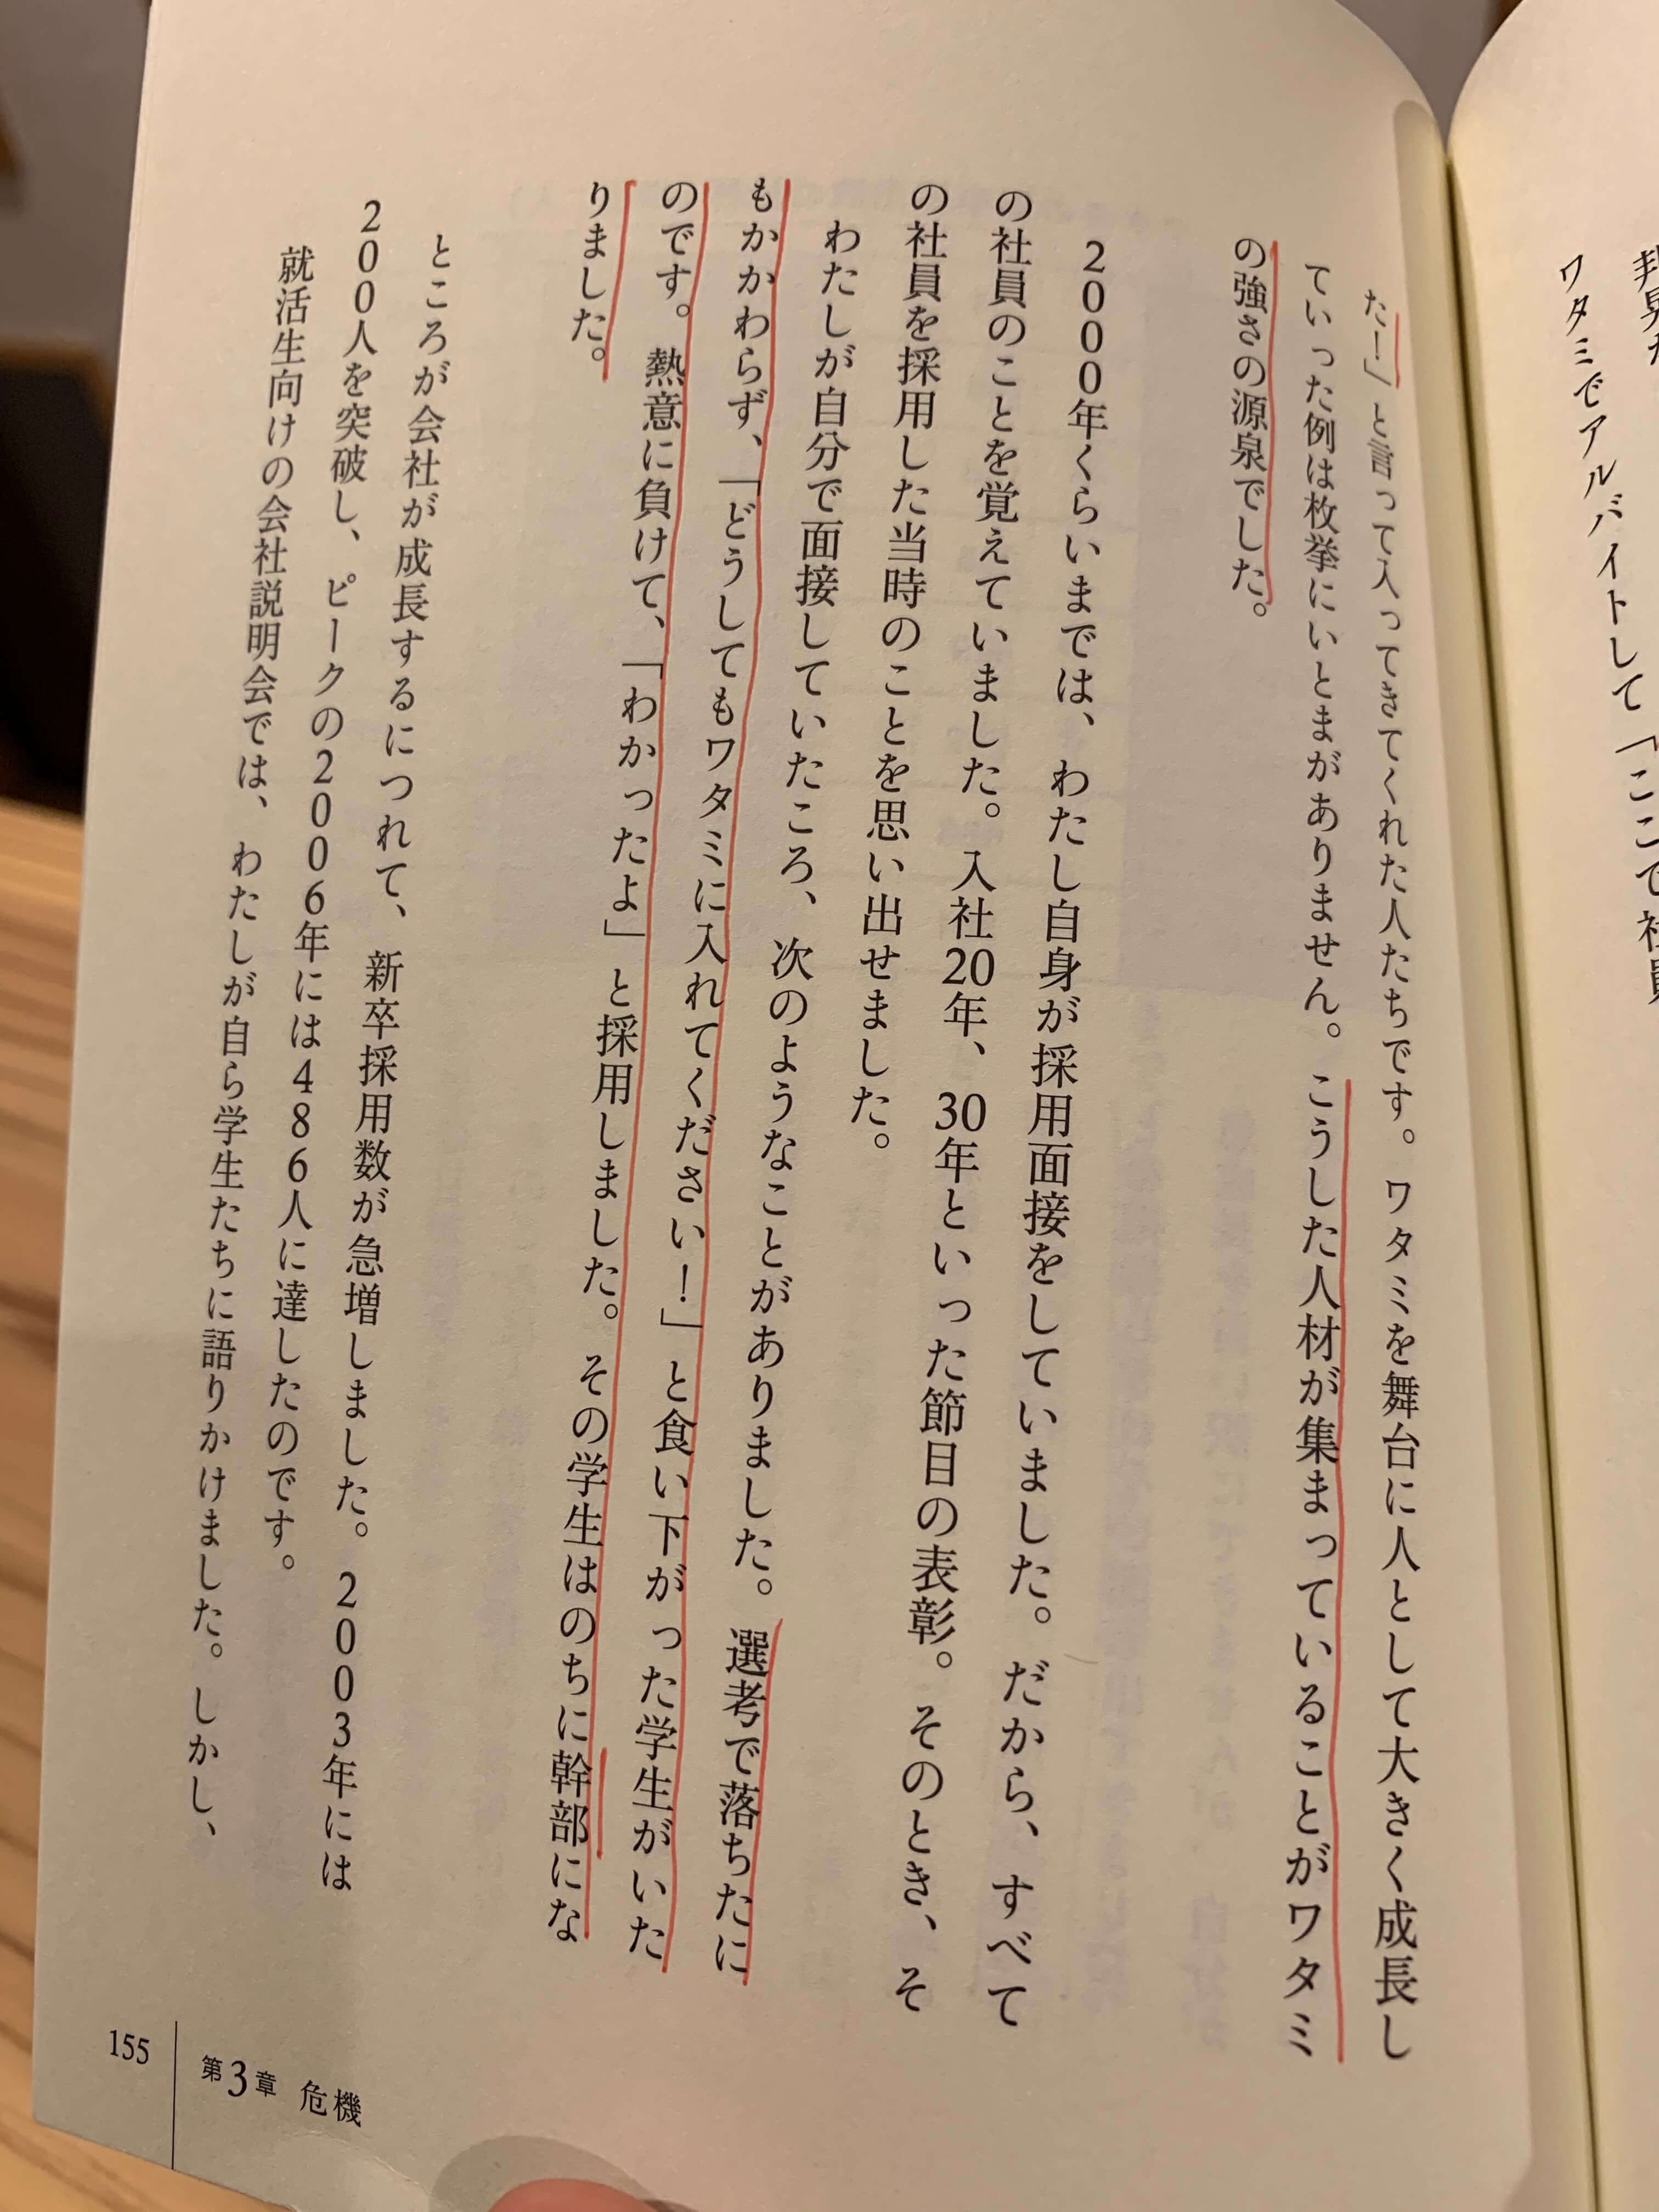 ワタミでアルバイトして「ここで社員
た!」と言って入ってきてくれた人たちです。ワタミを舞台に人として大きく成長し
ていった例は枚挙にいとまがありません。こうした人材が集まっていることがワタミ
の強さの源泉でした。
2000年くらいまでは、わたし自身が採用面接をしていました。だから、すべて
の社員のことを覚えていました。入社20年、30年といった節目の表彰。そのとき、そ
の社員を採用した当時のことを思い出せました。
わたしが自分で面接していたころ、次のようなことがありました。選考で落ちたに
もかかわらず、「どうしてもワタミに入れてください!」と食い下がった学生がいた
のです。熱意に負けて、「わかったよ」と採用しました。その学生はのちに幹部にな
りました。
ところが会社が成長するにつれて、新卒採用数が急増しました。2003年には
200人を突破し、ピークの2006年には486人に達したのです。
就活生向けの会社説明会では、わたしが自ら学生たちに語りかけました。しかし、
155
第3章 危機